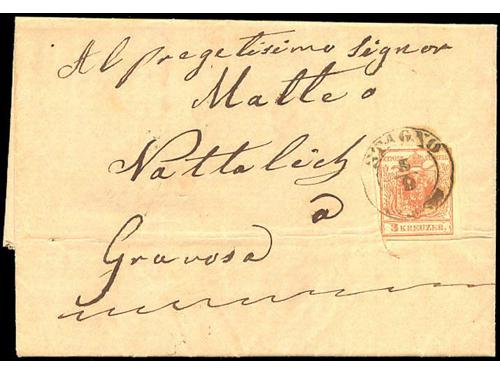 Al pregetisimo Signor
Matteo
Nattalich
a
Gravosa
STAGNO
5
9
3 KREUZER.